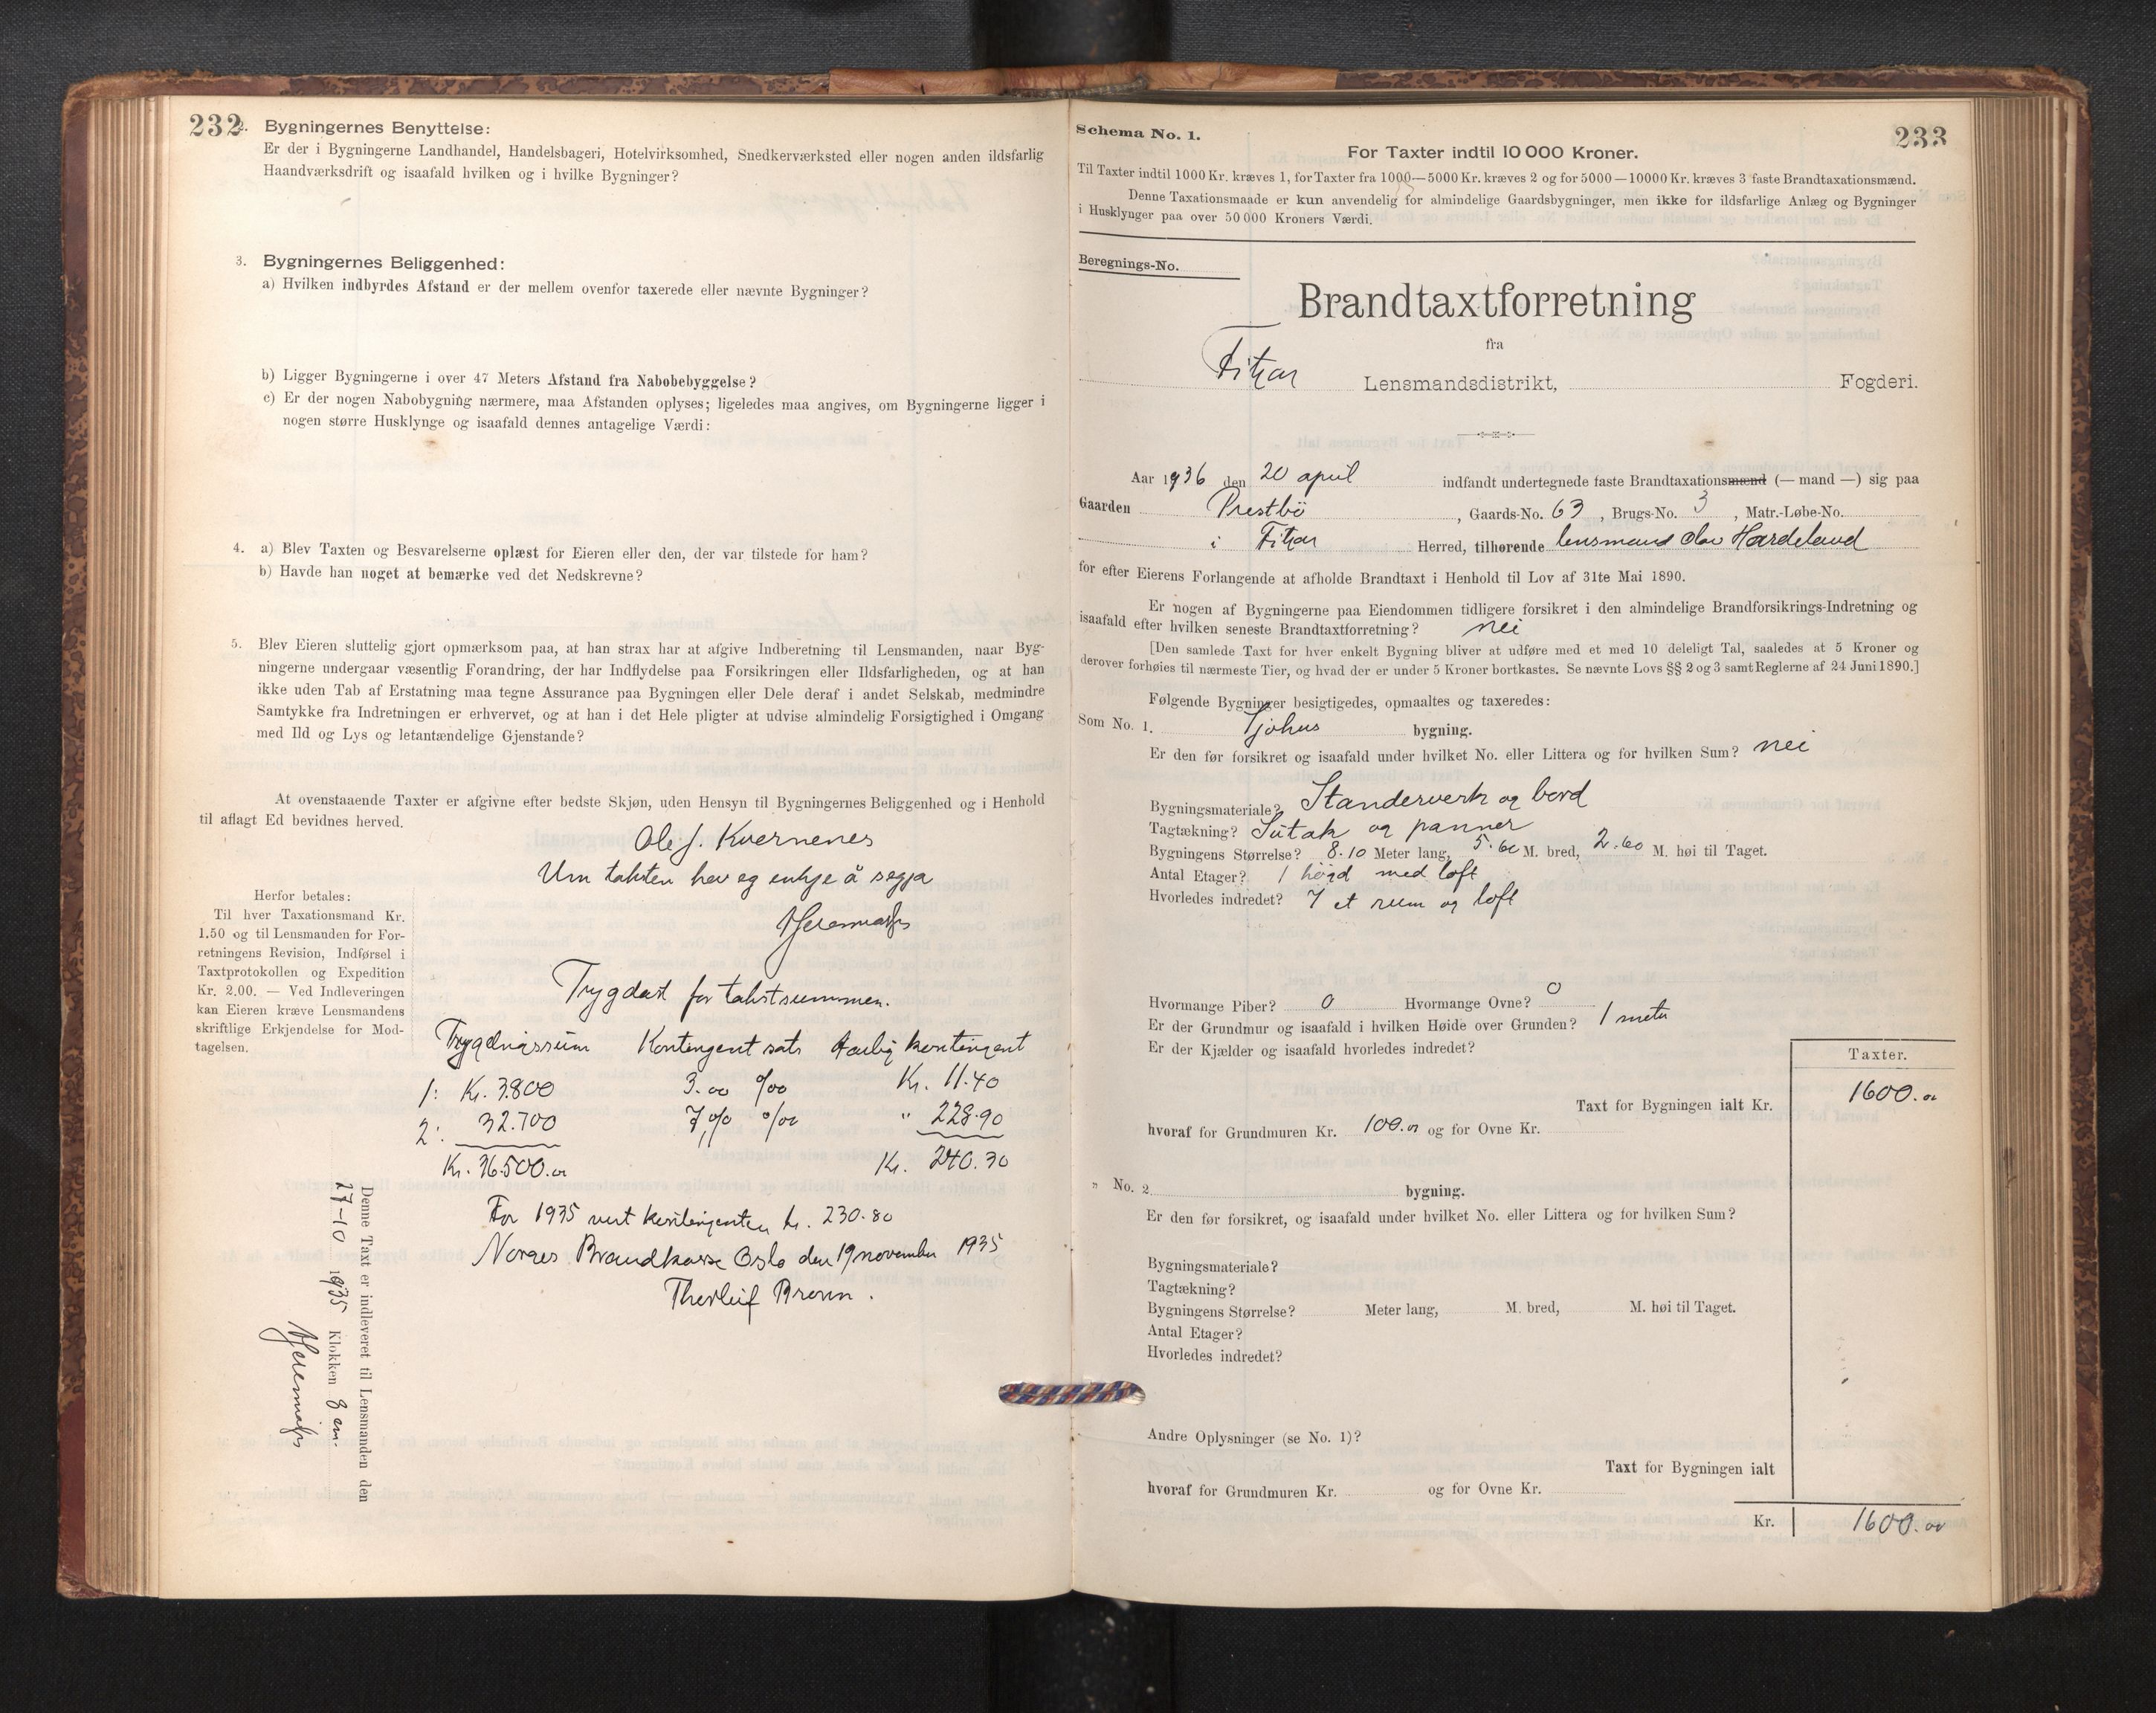 232
2. Bygningernes Benyttelse:
Er der i Bygningerne Landhandel, Handelsbageri, Hotelvirksomhed, Snedkerværksted eller nogen anden ildsfarlig
Haandværksdrift og isaafald hvilken og i hvilke Bygninger?
3. Bygningernes Beliggenhed:
a) Hvilken indbyrdes Afstand er der mellem ovenfor taxerede eller nævnte Bygninger?
b) Ligger Bygningerne i over 47 Meters Afstand fra Nabobebyggelse?
c) Er der nogen Nabobygning nærmere, maa Afstanden oplyses; ligeledes maa angives, om Bygningerne ligger i
nogen større Husklynge og isaafald dennes antagelige Værdi:
4. a) Blev Taxten og Besvarelserne oplæst for Eieren eller den, der var tilstede for ham?
b) Havde han noget at bemærke ved det Nedskrevne?
5. Blev Eieren sluttelig gjort opmærksom paa, at han strax har at afgive Indberetning til Lensmanden, naar Byg-
ningerne undergaar væsentlig Forandring, der har Indflydelse paa Forsikringen eller Ildsfarligheden, og at han
ikke uden Tab af Erstatning maa tegne Assurance paa Bygningen eller Dele deraf i andet Selskab, medmindre
Samtykke fra Indretningen er erhvervet, og at han i det Hele pligter at udvise almindelig Forsigtighed i Omgang
med Ild og Lys og letantændelige Gjenstande?
At ovenstaaende Taxter er afgivne efter bedste Skjøn, uden Hensyn til Bygningernes Beliggenhed og i Henhold
til aflagt Ed bevidnes herved.
Ole J. Kvernenes
Um taksten hev eg enkje å segja
Herfor betales:
Til hver Taxationsmand Kr.
1.50 og til Lensmanden for For-
retningens Revision, Indførsel i
Taxtprotokollen og Expedition
Kr. 2.00. — Ved Indleveringen
kan Eieren kræve Lensmandens
skriftlige Erkjendelse for Mod-
tagelsen.
Trygdast for takstsummen.
Trygdingssum Kontingent sats Aarlig kontingent
1: Kr. 3.800 3.00 ‰ Kr. 11.40
2: 32.700 7,00 ‰ " 228.90
Kr. 36.500.00 Kr. 240.30
For 1935 vert kontingenten kr. 230.80
Norges Brandkasse Oslo den 19 november 1935
Thorleif Brown.
Denne Taxt er indleveret til Lensmanden den
27-10 1935 Klokken 8 em.
233
Schema No. 1.
For Taxter indtil 10 000 Kroner.
Til Taxter indtil 1000 Kr. kræves 1, for Taxter fra 1000—5000 Kr. kræves 2 og for 5000—10000 Kr. kræves 3 faste Brandtaxationsmænd.
Denne Taxationsmaade er kun anvendelig for almindelige Gaardsbygninger, men ikke for ildsfarlige Anlæg og Bygninger
i Husklynger paa over 50 000 Kroners Værdi.
Beregnings-No.
Brandtaxtforretning
fra
Fitjar Lensmandsdistrikt, Fogderi.
Aar 1936 den 20 april indfandt undertegnede faste Brandtaxationsmænd (— mand —) sig paa
Gaarden Prestbö, Gaards-No. 63, Brugs-No. 3, Matr.-Løbe-No.
i Fitjar Herred, tilhørende lensmand Olav Hardeland
for efter Eierens Forlangende at afholde Brandtaxt i Henhold til Lov af 31te Mai 1890.
Er nogen af Bygningerne paa Eiendommen tidligere forsikret i den almindelige Brandforsikrings-Indretning og
isaafald efter hvilken seneste Brandtaxtforretning? nei
[Den samlede Taxt for hver enkelt Bygning bliver at udføre med et med 10 deleligt Tal, saaledes at 5 Kroner og
derover forhøies til nærmeste Tier, og hvad der er under 5 Kroner bortkastes. Se nævnte Lovs §§ 2 og 3 samt Reglerne af 24 Juni 1890.]
Følgende Bygninger besigtigedes, opmaaltes og taxeredes:
Som No. 1. Sjøhus bygning.
Er den før forsikret og isaafald under hvilket No. eller Littera og for hvilken Sum? nei
Bygningsmateriale? Standerverk og bord
Tagtækning? Sutak og panner
Bygningens Størrelse? 8.10 Meter lang, 5.60 M. bred, 2.60 M. høi til Taget.
Antal Etager? 1 høgd med loft
Hvorledes indredet? I et rum og loft
Hvormange Piber? 0 Hvormange Ovne? 0
Er der Grundmur og isaafald i hvilken Høide over Grunden? 1 meter
Er der Kjælder og isaafald hvorledes indredet?
Taxter.
Taxt for Bygningen ialt Kr. 1600.00
hvoraf for Grundmuren Kr. 100.00 og for Ovne Kr.
" No. 2 bygning.
Er den før forsikret, og isaafald under hvilket No. eller Littera og for hvilken Sum?
Bygningsmateriale?
Tagtækning?
Bygningens Størrelse? Meter lang, M. bred, M. høi til Taget.
Antal Etager?
Hvorledes indredet?
Andre Oplysninger (se No. 1)?
Taxt for Bygningen ialt
hvoraf for Grundmuren Kr. og for Ovne Kr.
Kr. 1600.00